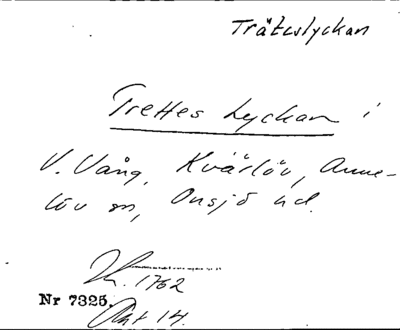 Träteslyckan
Trettes Lyckan i
V. Vång, Kvärlöv, Anne-
löv sn, Onsjö hd.
1762
Nr 7325. Akt 14.